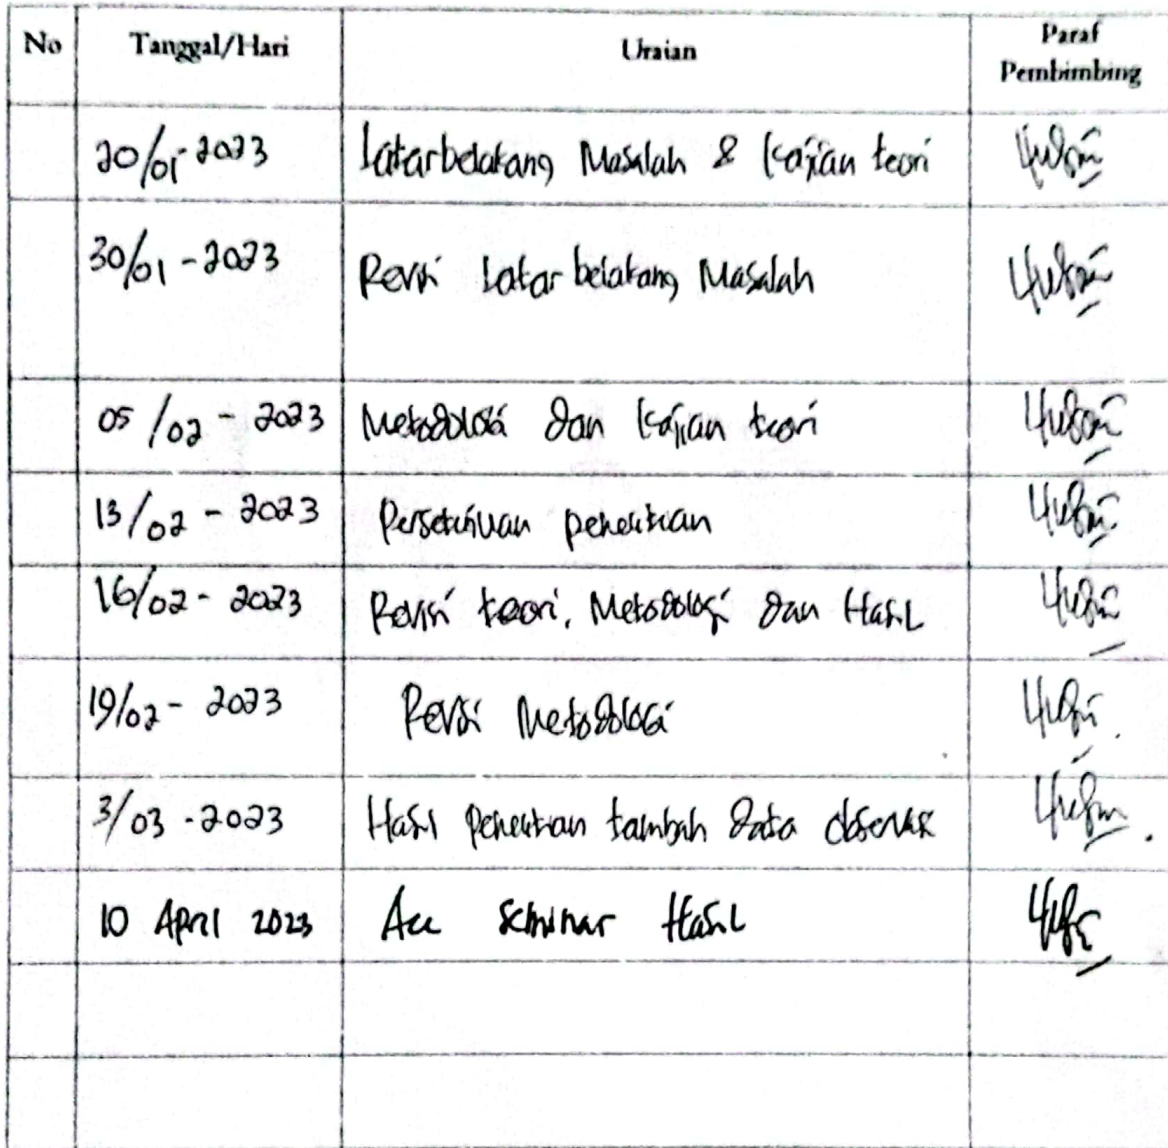 No Tanggal/Hari Uraian Paraf Pembimbing
20/01-2023 Latarbelakang Masalah & Kajian teori
30/01-2023 Revisi Latar belakang Masalah
05/02-2023 Metodologi dan Kajian teori
13/02-2023 Persetujuan penelitian
16/02-2023 Revisi teori, Metodologi dan Hasil
19/02-2023 Revisi Metodologi
3/03-2023 Hasil penelitian tambah data observasi
10 April 2023 Acc seminar Hasil